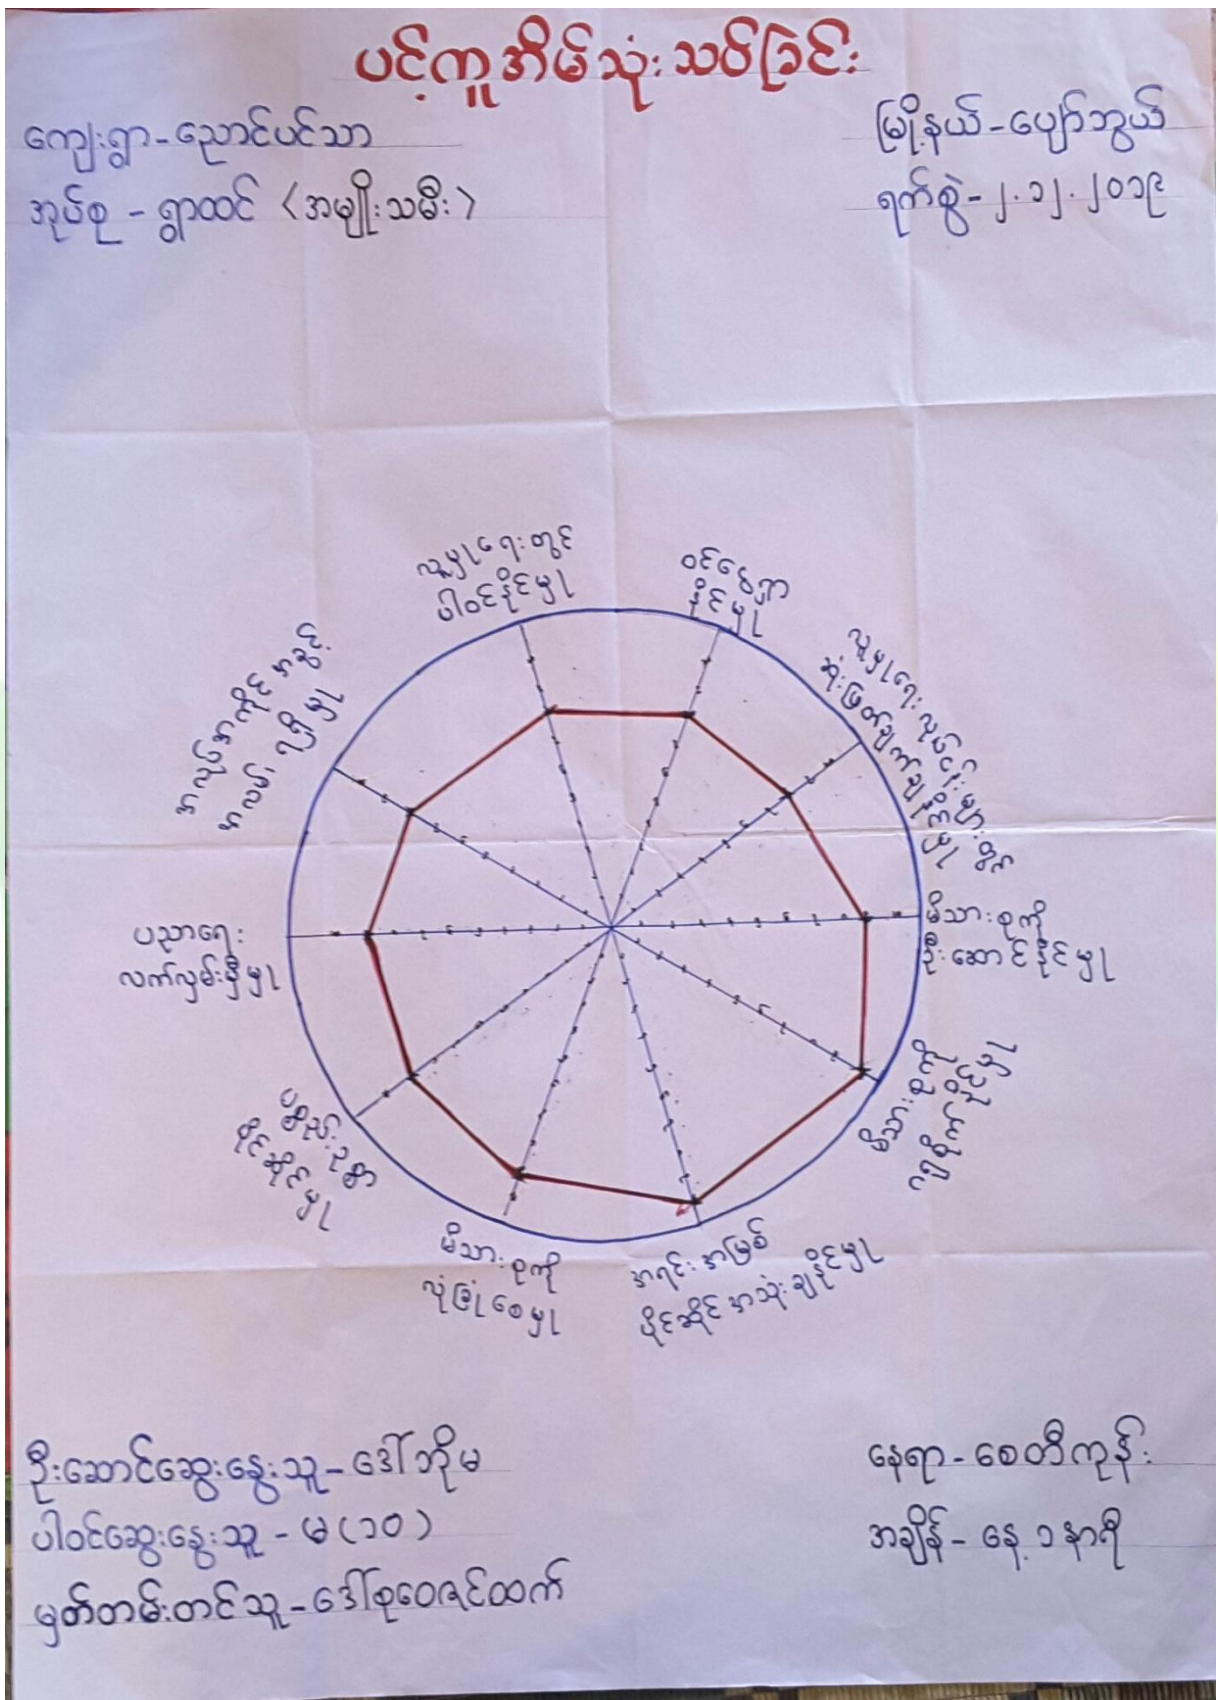 ပင့်ကူအိမ်သုံးသပ်ခြင်း
ကျေးရွာ-ညောင်ပင်သာ
အုပ်စု - ရွာထင် (အမျိုးသမီး)
မြို့နယ်-ပျော်ဘွယ်
ရက်စွဲ-၂.၁၂.၂၀၁၉
လူမှုရေးတွင်
ပါဝင်နိုင်မှု
ဝင်ငွေရှာ
နိုင်မှု
လူမှုရေးလုပ်ငန်းများတွင်
ဆုံးဖြတ်ချက်ချနိုင်မှု
မိသားစုကို
ဦးဆောင်နိုင်မှု
မိသားစုကို
နိုင်မှု
အရင်းအမြစ်
ပိုင်ဆိုင်အသုံးချနိုင်မှု
မိသားစုကို
လုံခြုံစေမှု
ပစ္စည်းဥစ္စာ
ပိုင်ဆိုင်မှု
ပညာရေး
လက်လှမ်းမှီမှု
အလုပ်အကိုင်အခွင့်
အလမ်း ရရှိမှု
ဦးဆောင်ဆွေးနွေးသူ-ဒေါ်ဘိုမ
ပါဝင်ဆွေးနွေးသူ - မ(၁၀)
မှတ်တမ်းတင်သူ-ဒေါ်စုဝေဇင်ထက်
နေရာ-စေတီကုန်း
အချိန်- နေ့ ၁ နာရီ